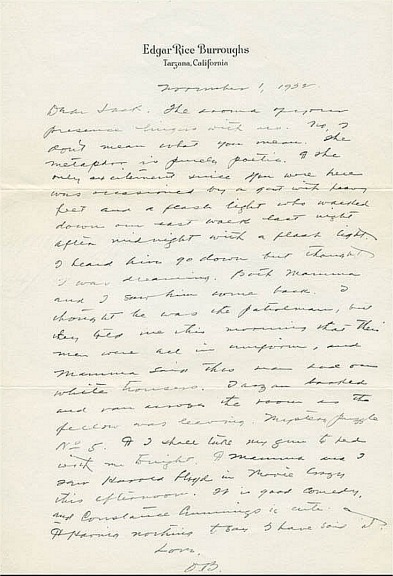 Edgar Rice Burroughs
Tarzana, California
November 1, 1932
Dear Jack. The aroma of your
presence lingers with us. No, I
don't mean what you mean. The
metaphor is purely poetic. ¶ The
only excitement since you were here
was occasioned by a gent with heavy
feet and a flash light who walked
down our east walk last night
after midnight with a flash light.
I heard him go down but thought
I was dreaming. Both Mamma
and I saw him come back. I
thought he was the patrolman, but
they told me this morning that their
men were all in uniform, and
Mamma said this man had on
white trousers. Tarzan barked
and ran across the room as the
fellow was leaving. Mystery puzzle
No 5. ¶ I shall take my gun to bed
with me tonight. ¶ Mamma and I
saw Harold Lloyd in Movie Crazy
this afternoon. It is good comedy,
and Constance Cummings is cute.
¶ Having nothing to say I have said it.
Love,
OB.